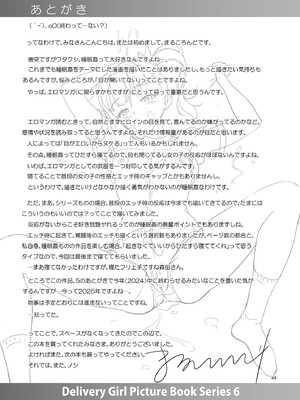 あとがき
( ´-`). oO(終わって…ない？)
ってなわけで、みなさんこんにちは、または初めまして、まるころんどです。
唐突ですがワタクシ、睡眠姦って大好きなんですよね…。
これまでも睡眠姦をテーマにした漫画を描いたことはありましたし、もっと描きたい気持ちも
あるんですが、悩みどころが、「目が開いてない」ってことなんですよね。
やっぱ、エロマンガに(に限らずかもですが)にとって目って重要だと思うんです。
エロマンガ読むときって、自然とまずヒロインの目を見て、喜んでるのか嫌がってるのかなど、
感情や状況を読み取ってると思うんですよね。それだけ情報量があるのが目だと思います。
人によっては「目がエロいからヌケる」って人もいるかもしれません。
その点、睡眠姦ってひたすら寝てるので、目も閉じてるし女の子の反応がほぼないんですよね。
いわば、エロマンガとしての武器を一つ封印してる気がするんです。
寝てることで普段の女の子の性格とエッチ時のギャップとかもありませんし。
というわけで、描きたいけどなかなか描く勇気がわかないのが睡眠姦なわけです。
ただ、まあ、シリーズものの場合、普段のエッチ時の反応は今までも描いてきてるので、たまには
こういうのもいいのでは？ってことで描いてみました。
反応がないからこそ好き放題やれるってのが睡眠姦の興奮ポイントでもありますし。
エッチ時に起きて、覚醒後のエッチも描くという選択肢もありましたが、ページ数の都合と、
私自身、睡眠姦もの作品を楽しむ場合、「起きなくていいからひたすら寝ててくれ」って思う
タイプなので、今回は最後まで寝ててもらいました。
…まあ寝てなかったわけですが。寝たフリ上手ですね森田さん。
ところでこの作品、5のあとがきで今年(2024)中に終わらせるみたいなことを書いた気が
するんですが…今って2025年ですよね…
物事は予定どおりには進まないってことですね。
…知ってた。
ってことで、スペースがなくなってきたのでこの辺で。
この本を買ってくれたみなさま、ありがとうございました。
よければまた、次の本も買ってやってください。
それでは、また。ノシ
49
Delivery Girl Picture Book Series 6